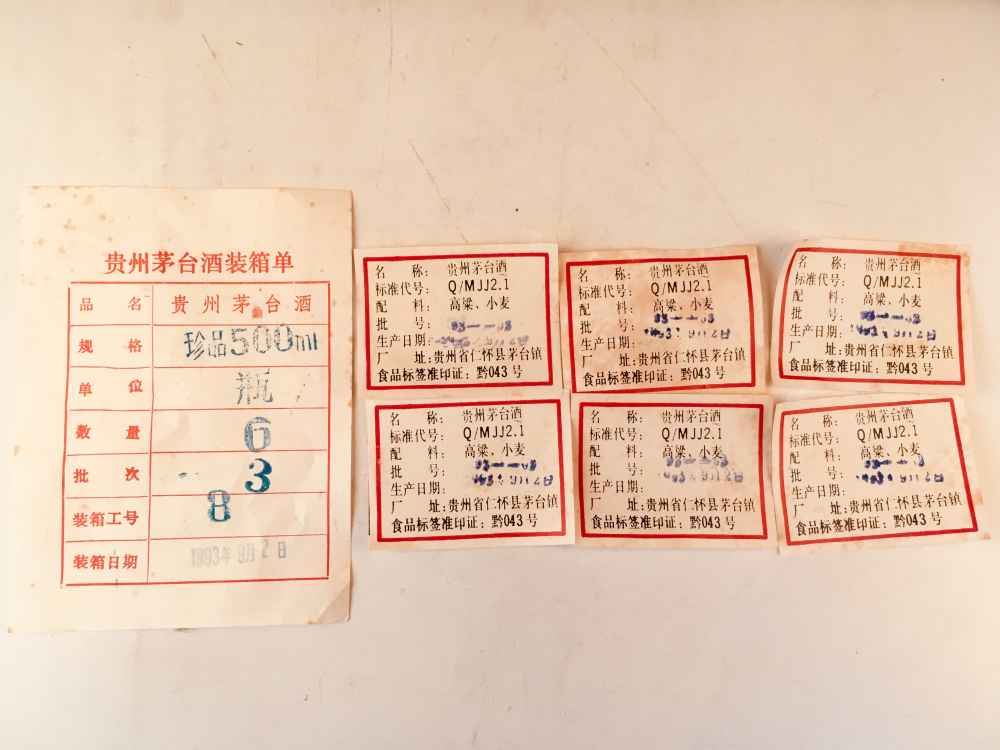 贵州茅台酒装箱单
品 名 贵州茅台酒
规 格 珍品500ml
单 位 瓶
数 量 6
批 次 3
装箱工号 8
装箱日期 1993年9月2日
名 称: 贵州茅台酒
标准代号: Q/MJJ2.1
配 料: 高粱、小麦
批 号:
生产日期:
厂 址:贵州省仁怀县茅台镇
食品标签准印证: 黔043号
名 称: 贵州茅台酒
标准代号: Q/MJJ2.1
配 料: 高粱、小麦
批 号:
生产日期:
厂 址:贵州省仁怀县茅台镇
食品标签准印证: 黔043号
名 称: 贵州茅台酒
标准代号: Q/MJJ2.1
配 料: 高粱、小麦
批 号:
生产日期:
厂 址:贵州省仁怀县茅台镇
食品标签准印证: 黔043号
名 称: 贵州茅台酒
标准代号: Q/MJJ2.1
配 料: 高粱、小麦
批 号:
生产日期:
厂 址:贵州省仁怀县茅台镇
食品标签准印证: 黔043号
名 称: 贵州茅台酒
标准代号: Q/MJJ2.1
配 料: 高粱、小麦
批 号:
生产日期:
厂 址:贵州省仁怀县茅台镇
食品标签准印证: 黔043号
名 称: 贵州茅台酒
标准代号: Q/MJJ2.1
配 料: 高粱、小麦
批 号:
生产日期:
厂 址:贵州省仁怀县茅台镇
食品标签准印证: 黔043号